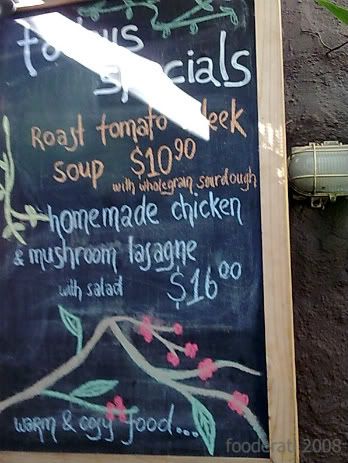 todays
specials
Roast tomato & leek
soup $10.90
with wholegrain sourdough
homemade chicken
& mushroom lasagne
with salad $16.00
warm & cosy food...
fooderati 2008